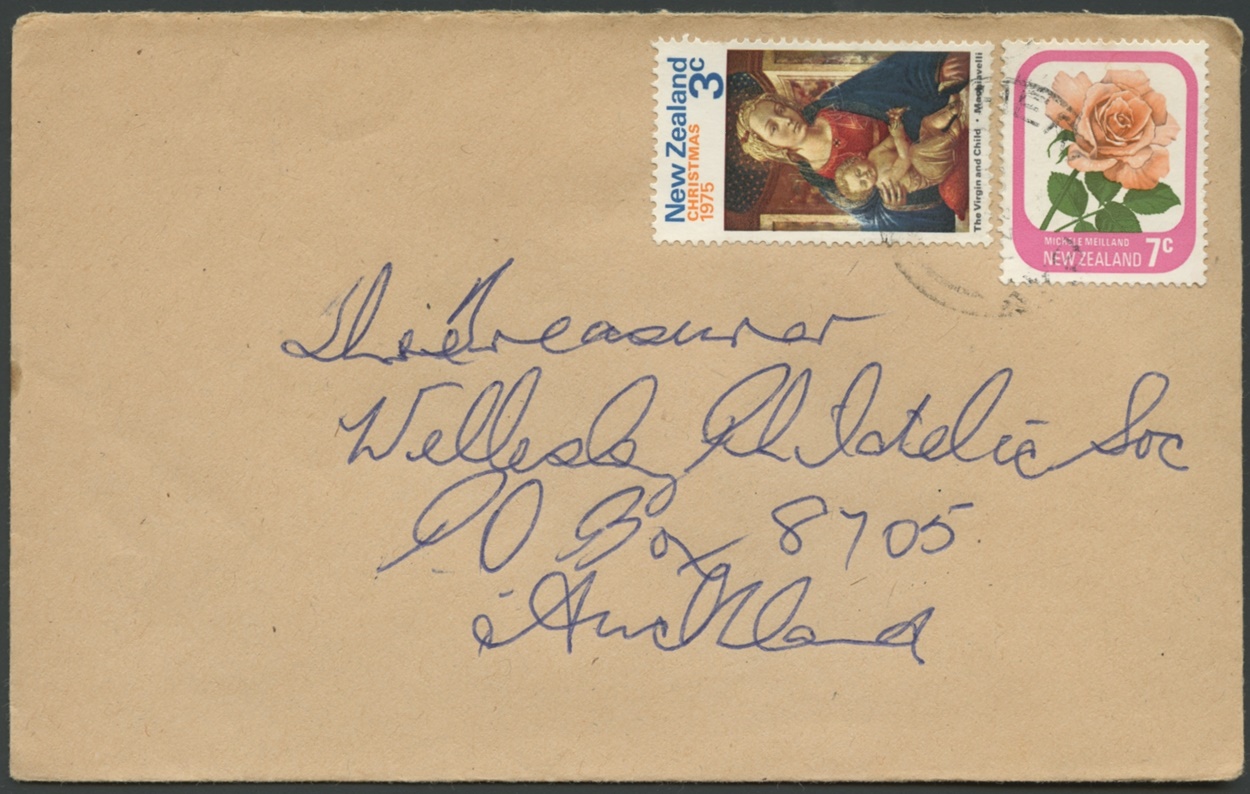 New Zealand 3c
CHRISTMAS
1975
The Virgin and Child • Machiavelli
MICHÈLE MEILLAND
NEW ZEALAND 7c
The Treasurer
Wellesley Philatelic Soc
PO Box 8705
Auckland